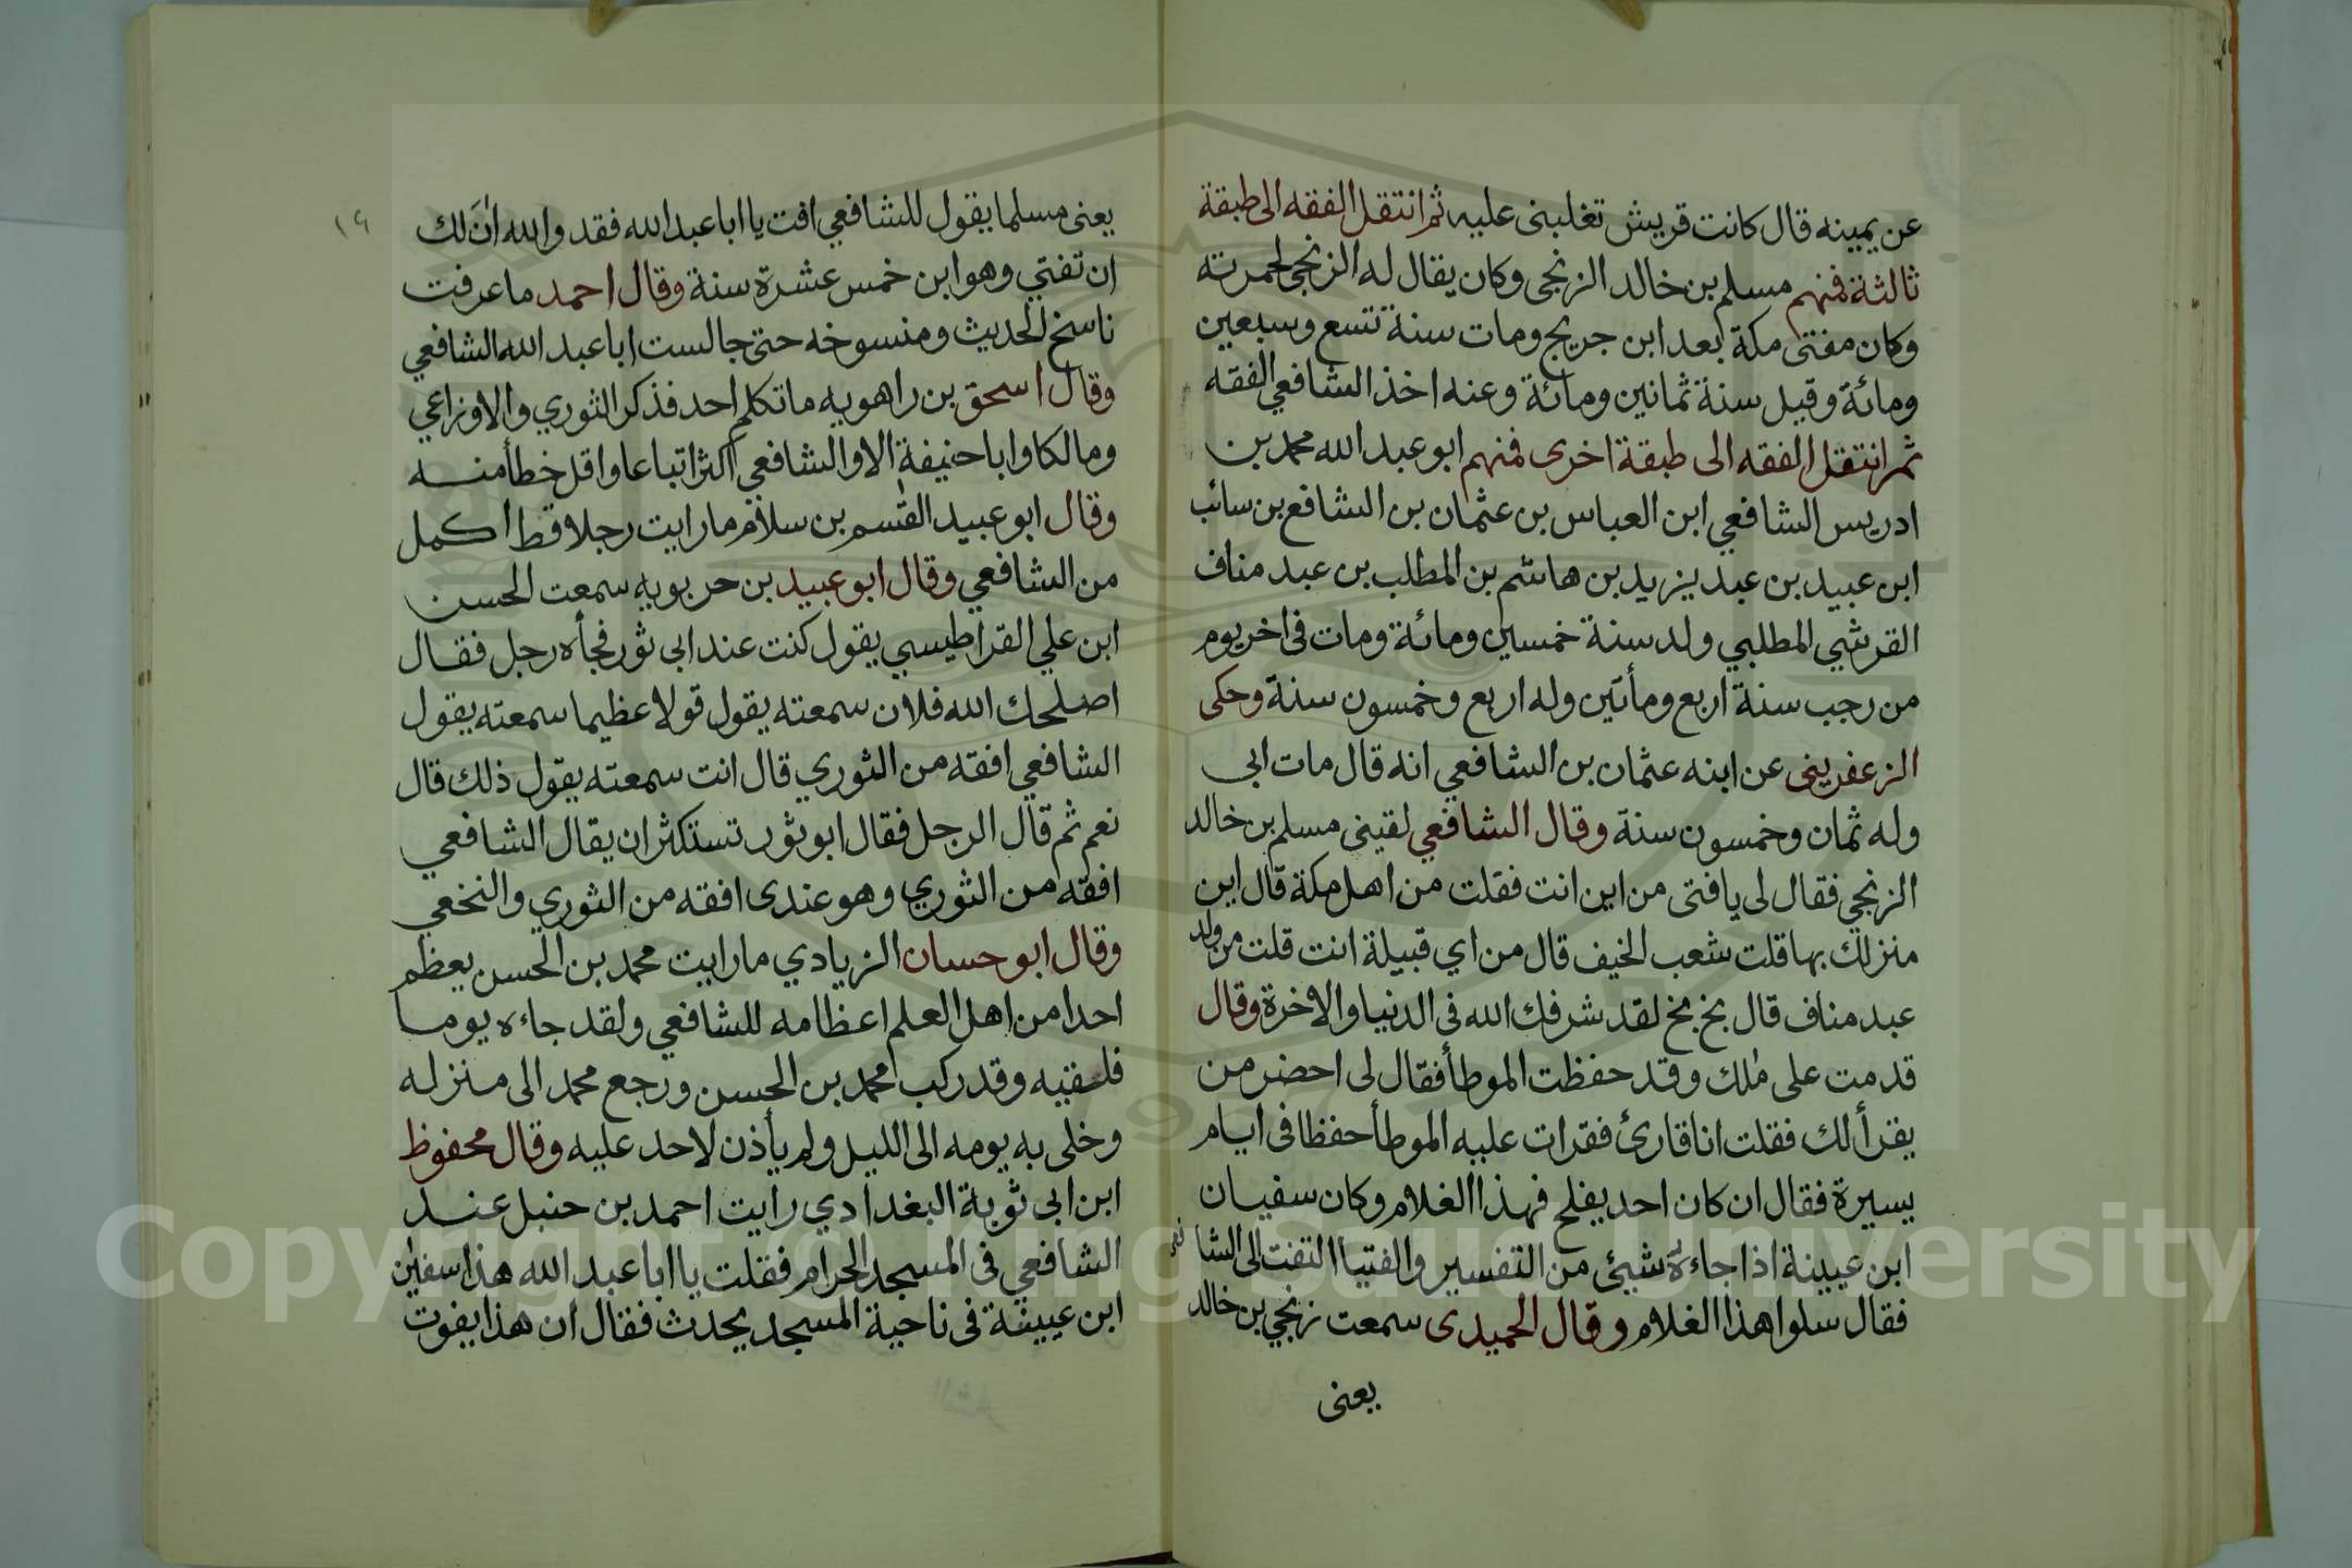 عن يمينه قال كانت قريش تغلبنى عليه ثم انتقل الفقه الى طبقة
ثالثة فمنهم مسلم بن خالد الزنجى وكان يقال له الزنجي لحمرته
وكان مفتى مكة بعد ابن جريج ومات سنة تسع وسبعين
ومائة وقيل سنة ثمانين ومائة وعنه اخذ الشافعي الفقه
ثم انتقل الفقه الى طبقة اخرى فمنهم ابو عبد الله محمد بن
ادريس الشافعي ابن العباس بن عثمان بن الشافع بن سائب
ابن عبيد بن عبد يزيد بن هاشم بن المطلب بن عبد مناف
القرشي المطلبي ولد سنة خمسين ومائة ومات فى اخر يوم
من رجب سنة اربع ومأتين وله اربع وخمسون سنة وحكى
الزعفرينى عن ابنه عثمان بن الشافعي انه قال مات ابى
وله ثمان وخمسون سنة وقال الشافعي لقينى مسلم بن خالد
الزنجي فقال لى يا فتى من اين انت فقلت من اهل مكة قال اين
منزلك بها قلت شعب الخيف قال من اي قبيلة انت قلت من ولد
عبد مناف قال بخ بخ لقد شرفك الله فى الدنيا والاخرة وقال
قدمت على ملك وقد حفظت الموطأ فقال لى احضر من
يقرأ لك فقلت انا قارئ فقرات عليه الموطأ حفظا فى ايام
يسيرة فقال ان كان احد يفلح فهذا الغلام وكان سفيان
ابن عيينة اذا جاءه شيئ من التفسير والفتيا التفت الى الشافعى
فقال سلوا هذا الغلام وقال الحميدى سمعت زنجي بن خالد
يعنى
١٩
يعنى مسلما يقول للشافعي افت يا ابا عبد الله فقد والله انَ لك
ان تفتي وهو ابن خمس عشرة سنة وقال احمد ما عرفت
ناسخ الحديث ومنسوخه حتى جالست ابا عبد الله الشافعي
وقال اسحق بن راهويه ما تكلم احد فذكر الثوري والاوزاعي
ومالكا وابا حنيفة الا والشافعي اكثر اتباعا واقل خطأ منه
وقال ابو عبيد القسم بن سلام ما رايت رجلا قط اكمل
من الشافعي وقال ابو عبيد بن حربويه سمعت الحسن
ابن علي القراطيسي يقول كنت عند ابى ثور فجأه رجل فقال
اصلحك الله فلان سمعته يقول قولا عظيما سمعته يقول
الشافعي افقه من الثوري قال انت سمعته يقول ذلك قال
نعم ثم قال الرجل فقال ابو ثور تستكثر ان يقال الشافعي
افقه من الثوري وهو عندى افقه من الثوري والنخعي
وقال ابو حسان الزيادي ما رايت محمد بن الحسن يعظم
احدا من اهل العلم اعظامه للشافعي ولقد جاءه يوما
فلقيه وقد ركب محمد بن الحسن ورجع محمد الى منزله
وخلى به يومه الى الليل ولم يأذن لاحد عليه وقال محفوظ
ابن ابى ثوبة البغدادي رايت احمد بن حنبل عند
الشافعي فى المسجد الحرام فقلت يا ابا عبد الله هذا سفين
ابن عيينة فى ناحية المسجد يحدث فقال ان هذا يفوت
Copyright © King Saud University